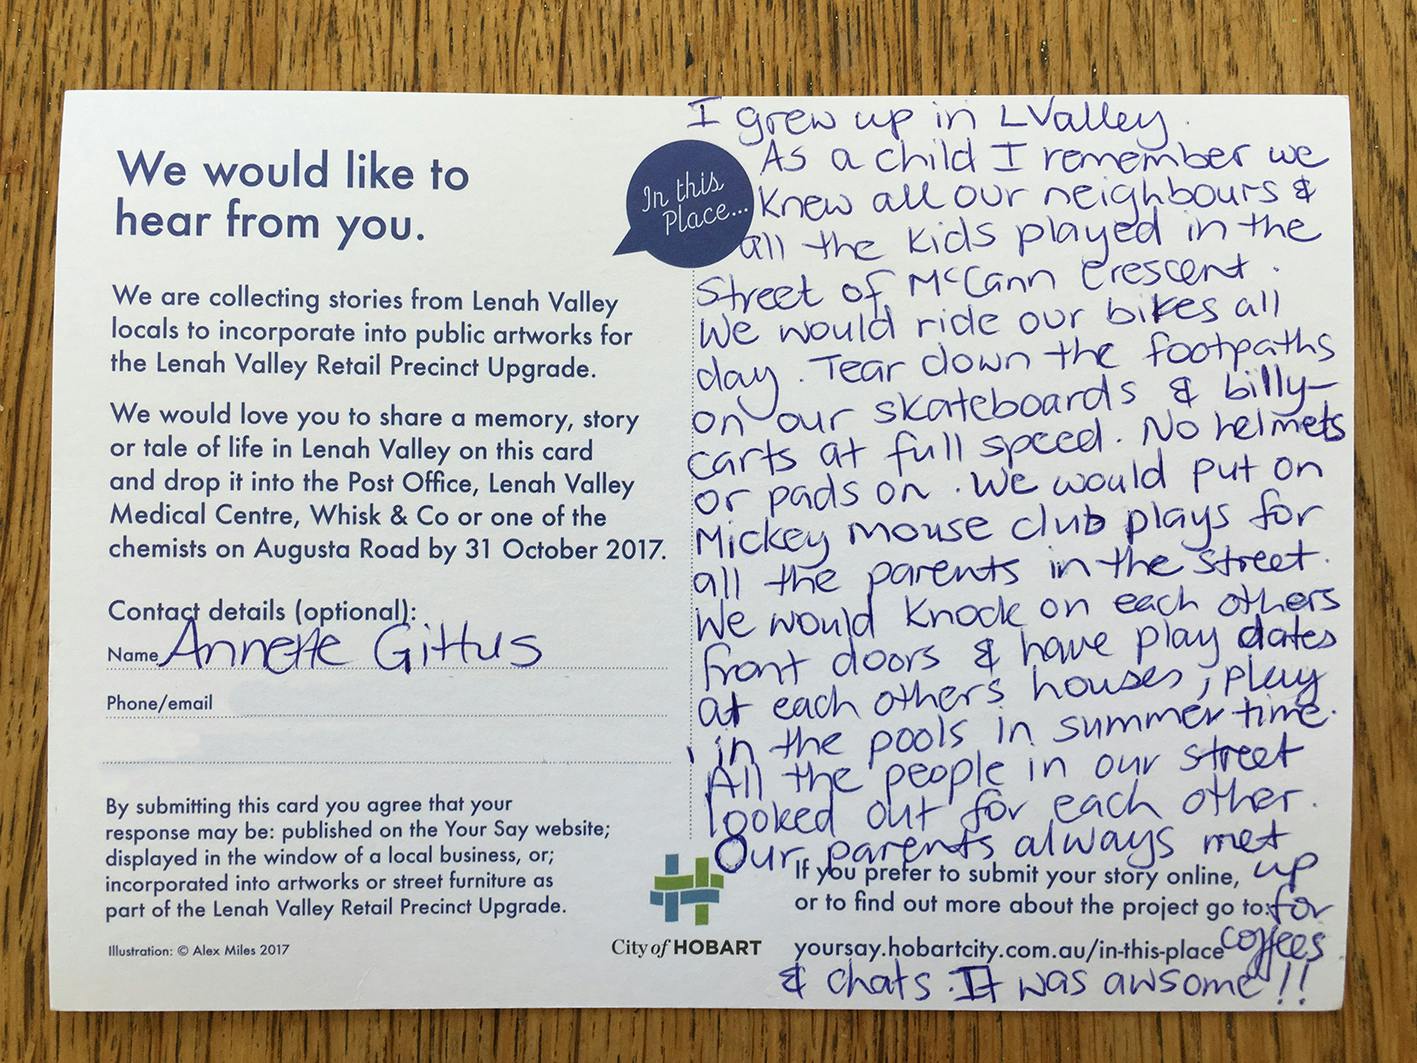 We would like to
hear from you.
We are collecting stories from Lenah Valley
locals to incorporate into public artworks for
the Lenah Valley Retail Precinct Upgrade.
We would love you to share a memory, story
or tale of life in Lenah Valley on this card
and drop it into the Post Office, Lenah Valley
Medical Centre, Whisk & Co or one of the
chemists on Augusta Road by 31 October 2017.
Contact details (optional):
Name Annette Gittus
Phone/email
By submitting this card you agree that your
response may be: published on the Your Say website;
displayed in the window of a local business, or;
incorporated into artworks or street furniture as
part of the Lenah Valley Retail Precinct Upgrade.
Illustration: © Alex Miles 2017
In this
Place...
I grew up in LValley.
As a child I remember we
knew all our neighbours &
all the kids played in the
street of McCann Crescent.
We would ride our bikes all
day. Tear down the footpaths
on our skateboards & billy-
carts at full speed. No helmets
or pads on. We would put on
Mickey mouse club plays for
all the parents in the street.
We would knock on each others
front doors & have play dates
at each others houses, play
in the pools in summer time.
All the people in our street
looked out for each other.
Our parents always met
up
for
coffees
& chats. It was awsome!!
If you prefer to submit your story online,
or to find out more about the project go to:
yoursay.hobartcity.com.au/in-this-place
City of HOBART